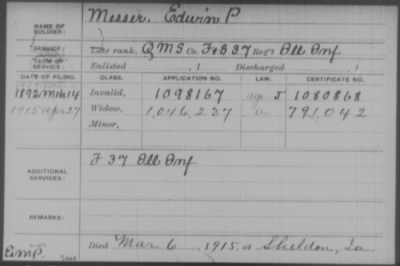 NAME OF SOLDIER: Messer, Edwin P
SERVICE: Late rank, QMS Co. F & B 37 Reg't Ill Inf
TERM OF SERVICE: Enlisted , 1 Discharged , 1
DATE OF FILING. CLASS. APPLICATION NO. LAW. CERTIFICATE NO.
1892 Mch 14 Invalid, 1098167 1080868
1915 Apr 27 Widow, 1,046,237 791,042
Minor,
ADDITIONAL SERVICES: F 37 Ill Inf
REMARKS:
Died Mar 6, 1915, at Sheldon, Ia